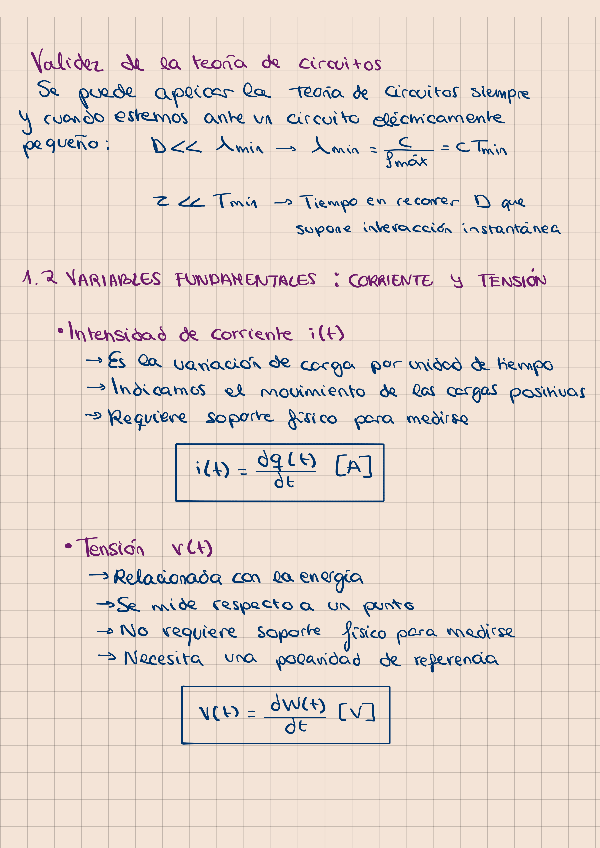 Validez de la teoría de circuitos
Se puede aplicar la teoría de circuitos siempre
y cuando estemos ante un circuito eléctricamente
pequeño: D << λmin → λmin = c/fmáx = c Tmin
z << Tmin → Tiempo en recorrer D que
supone interacción instantánea
1.2 VARIABLES FUNDAMENTALES : CORRIENTE y TENSIÓN
• Intensidad de corriente i(t)
→ Es la variación de carga por unidad de tiempo
→ Indicamos el movimiento de las cargas positivas
→ Requiere soporte físico para medirse
i(t) = dq(t)/dt [A]
• Tensión v(t)
→ Relacionada con la energía
→ Se mide respecto a un punto
→ No requiere soporte físico para medirse
→ Necesita una polaridad de referencia
v(t) = dW(t)/dt [V]